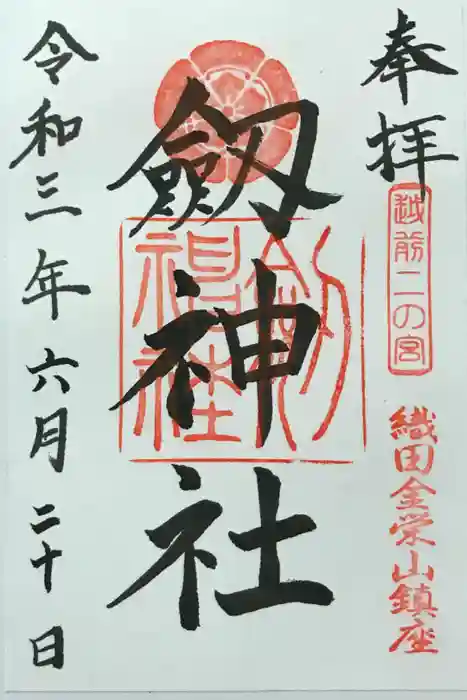 奉拝
越前二の宮
織田金栄山鎮座
劔神社
劔神社
令和三年六月二十日